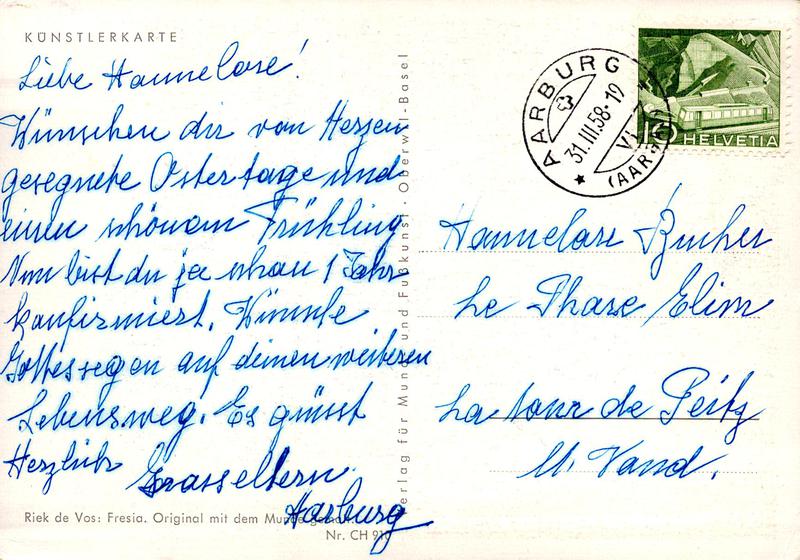 KÜNSTLERKARTE
Liebe Hannelore!
Wünschen dir von Herzen
gesegnete Ostertage und
einen schönen Frühling
Nun bist du ja schon 1 Jahr
konfirmiert. Wünsche
Gottessegen auf deinen weiteren
Lebensweg. Es grüsst
Herzlich Grosseltern
Aarburg
Riek de Vos: Fresia. Original mit dem Munde gemalt.
Nr. CH 910
Verlag für Mund- und Fußkunst · Oberwil-Basel
AARBURG
31.III.58-19
VI
(AARGAU)
10
HELVETIA
Hannelore Bucher
Le Phare Elim
La tour de Peilz
Vaud.